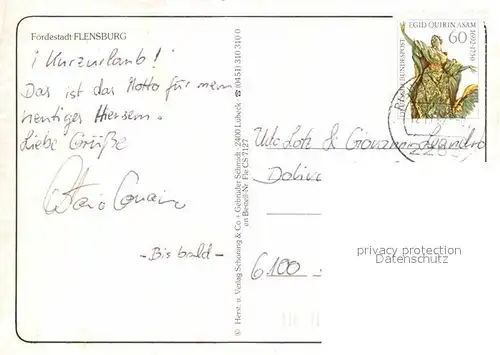 Fördestadt FLENSBURG
¡ Kurzurlaub !
Das ist das Motto für mein
heutiges Hiersein.
Liebe Grüße
- Bis bald -
© Herst. u. Verlag Schöning & Co + Gebrüder Schmidt · 2400 Lübeck · ☎ (0451) 310 310 0
en Bestell-Nr. Fle CS 7127
EGID QUIRIN ASAM
1692-1750
60
DEUTSCHE BUNDESPOST
Udo Lotz & Giovanni Leandro
6100
privacy protection
Datenschutz